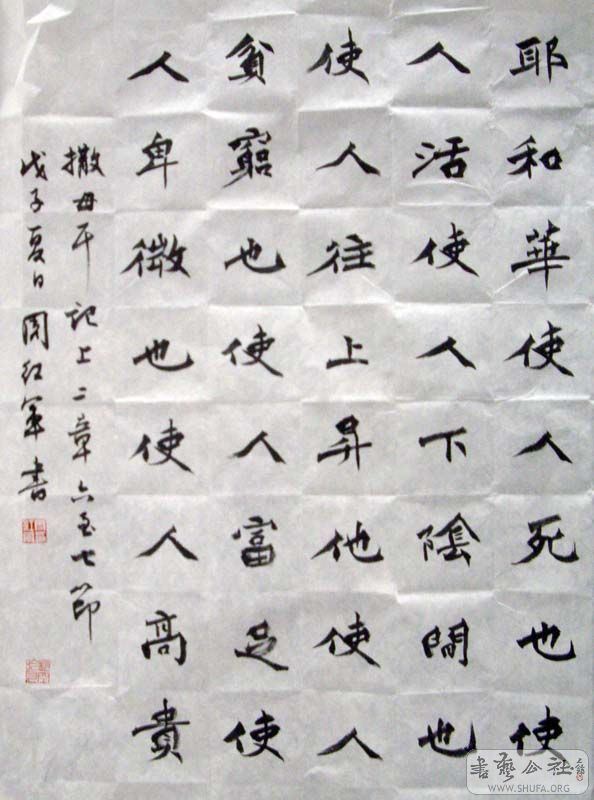 耶和華使人死也使
人活使人下陰間也
使人往上昇他使人
貧窮也使人富足使
人卑微也使人高貴
撒母耳記上二章六至七節
戊子夏日周红軍書
書藝公社
WWW.SHUFA.ORG